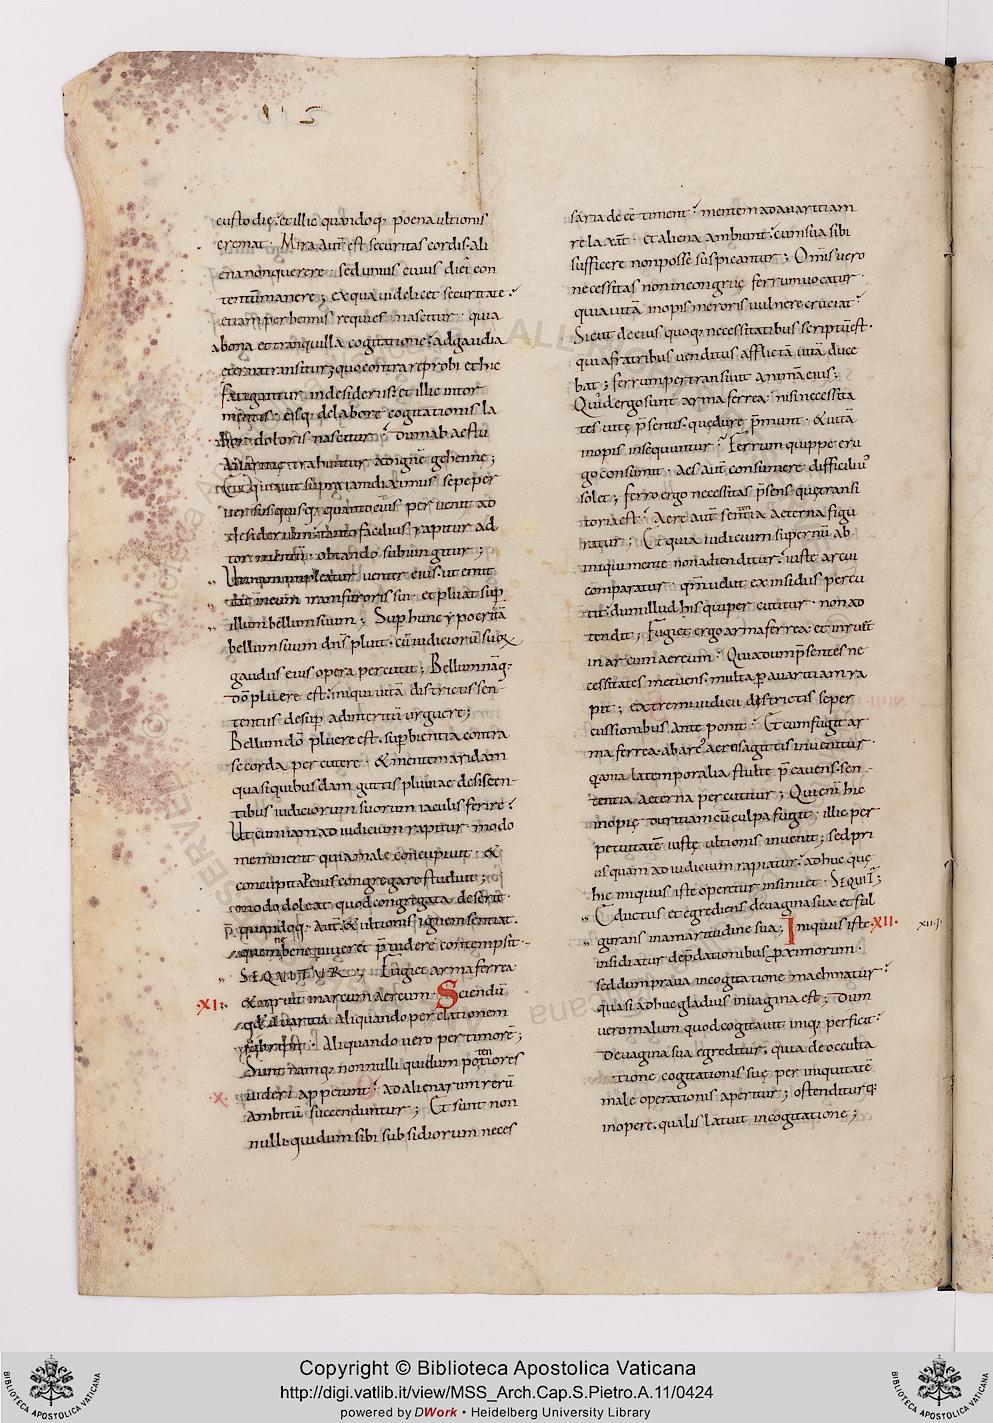 custodię; et illic quandoq; poena ultionis
cremat. Mira aut̄ est securitas cordis. ali
ena non querere. sed unius cuius diei con
tentū manere; ex qua videlicet securitate
etiam perhennis requies nascitur. quia
a bona et tranquilla cogitatione ad gaudia
eterna transitur; quo contra reprobi et hic
fatigantur in desideriis et illic in tor
mentis. eisq; de labore cogitationis la
bor doloris nascitur dum ab aestu
avaritię trahuntur ad ignē gehennę;
Et quia ut supra iam diximus sepe per
versus quisq; quanto citius pervenit ad
desiderium tanto facilius rapitur ad
tormentū. optando subiungitur;
Utinam impleatur venter eius. ut emit
tat in eum iram furoris sui. et pluat sup̄
illum bellum suum; Sup̄ hunc
bellum suum dn̄s pluit. cū iudiciorū suoꝝ
gaudiis eius opera percutit; Bellum nāq;
dō pluere est. iniqui vitā districtis sen
tentiis desup̄ ad interitū urguere;
Bellum dō pluere est. sup̄bientia contra
se corda percutere. & mentem aridam
quasi quibusdam guttis pluviae descen
tibus iudiciorum suorum iaculis ferire
Ut cum iam ad iudicium rapitur. modo
meminerit quia male concupivit. &
concupita peius congregare studuit;
modo doleat quod congregata deserit.
quandoq; aut̄ & ultionis ignem sentiat.
quem bene vivere et p̄videre contempsit.
SEQUITUR; Fugiet arma ferrea
& irruit in arcum aereum. Sciendū
·XI· qđ avaritia aliquando per elationem
subripit. Aliquando vero per timorē;
Sunt namq; nonnulli qui dum potentiores
·X· videri appetunt. ad alienarum rerū
ambitū succenduntur; Et sunt non
nulli. qui dum sibi subsidiorum neces
saria deēē timent. mentem ad avaritiam
relaxāt. et aliena ambiunt cum sua sibi
sufficere non posse suspicantur; Omīs vero
necessitas non incongruę ferrum vocatur
quia vitā inopis meroris vulnere cruciat
Sicut de eius quoq; necessitatibus scriptū est.
qui a fratribus venditus afflictā vitā duce
bat; ferrum pertransivit animā eius;
Quid ergo sunt arma ferrea. nisi necessita
tes vitę p̄sentis. quę dure p̄munt. & vitā
inopis insequuntur. Ferrum quippe eru
go consumit. Aes aut̄ consumere difficiliꝰ
solet; ferro ergo necessitas p̄sens quę transi
toria est. Aere aut̄ sententia aeterna figu
ratur; Et quia iudicium supernū ab
iniqui mente non adtenditur. iuste arcui
comparatur. qm̄ velut ex insidiis percu
tit. dum illud his qui percutitur. non ad
tendit; Fugiet ergo arma ferrea. et inruet
in arcum aereum. Quia dum p̄sentes ne
cessitates metuens. multa p̄ avaritiam ra
pit; extremi iudicii districtis se per
cussionibus ante ponit. Et cum fugit ar
ma ferrea. ab arcꝰ aerei sagittis invenitur
qā mala temporalia stulte p̄cavens. sen
tentia aeterna percutitur; Qui enī hic
inopię duritiam cū culpa fugit. illic per
petuitatē iustę ultionis invenit; sed pri
us quam ad iudicium rapiatur. adhuc que
hic iniquus iste operetur insinuet. SEQUIT̄;
Eductus et egrediens de vagina sua. et ful
gurans in amaritudine sua; Iniquus iste ·XII· XIII
insidiatur dep̄dationibus p̄ximorum.
sed dum prava in cogitatione machinatur
quasi adhuc gladius in vagina est; Dum
vero malum quod cogitavit iniq; perficit
de vagina sua egreditur. quia de occulta
tione cogitationis suę per iniquitatē
malę operationis aperitur; ostenditurq;
in opere. qualis latuit in cogitatione;
Copyright © Biblioteca Apostolica Vaticana
http://digi.vatlib.it/view/MSS_Arch.Cap.S.Pietro.A.11/0424
powered by DWork • Heidelberg University Library
BIBLIOTECA APOSTOLICA VATICANA
BIBLIOTECA APOSTOLICA VATICANA